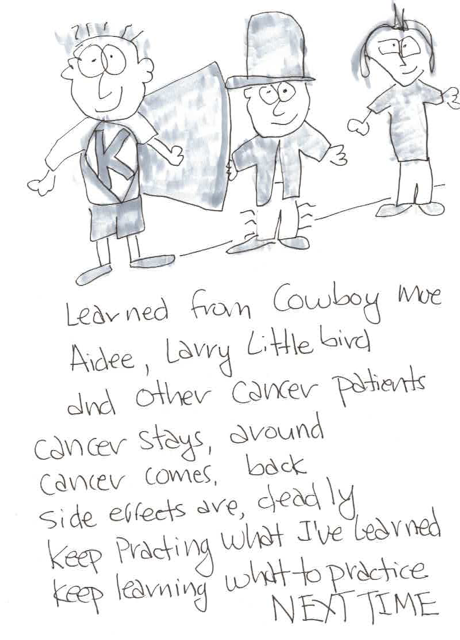 K
Learned from Cowboy Moe
Aidee, Larry Littlebird
and other cancer patients
cancer stays, around
cancer comes, back
side effects are, deadly
Keep Practing what I've learned
keep learning what to practice
NEXT TIME